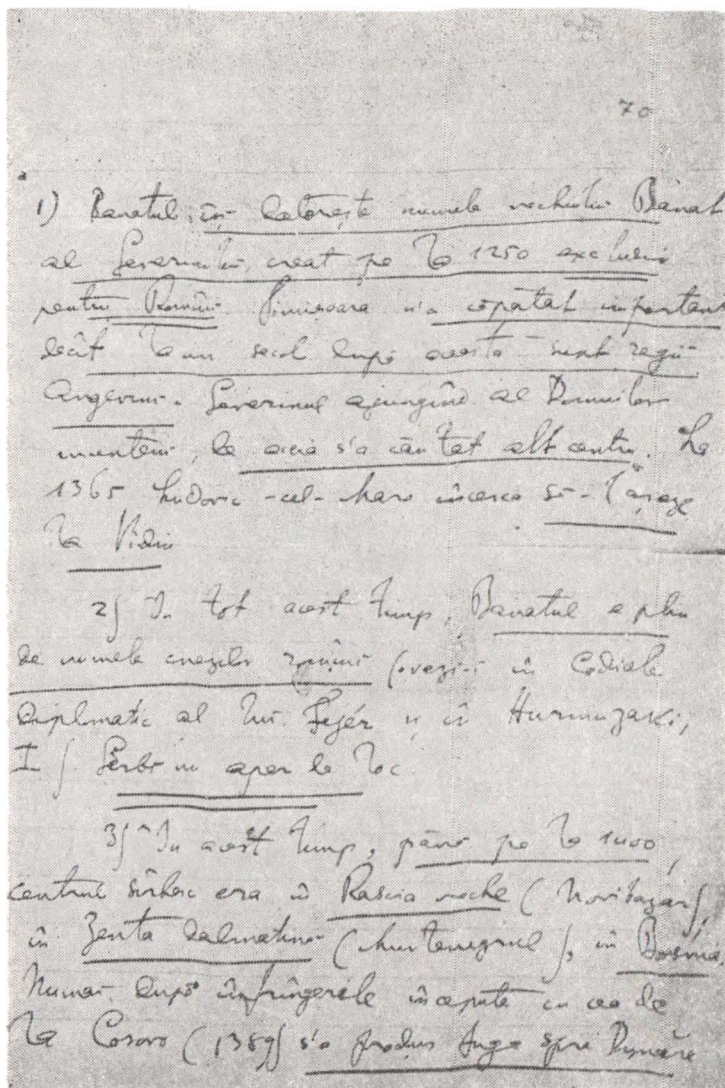 70
1) Banatul își datorește numele vechiului Bănat
al Severinului, creat pe la 1250 exclusiv
pentru Români. Timișoara n'a căpătat importanț
decât la un secol după aceasta supt regii
Angevini. Severinul ajungînd al Domnilor
munteni, de aceia s'a căutat alt centru. La
1365 Ludovic-cel-Mare încerca să-l așeze
la Vidin
2) În tot acest timp, Banatul e plin
de numele cnezilor români (vezi-i în Codicele
diplomatic al lui Fejér și în Hurmuzaki,
I). Sârbi nu apar de loc.
3) În acest timp, până pe la 1400,
centrul sîrbesc era în Rascia veche (Novibazar),
în Zenta dalmatină (Muntenegrul), în Bosnia.
Numai după înfrîngerile începute cu cea de
la Cosovo (1389) s'a produs fuga spre Dunăre